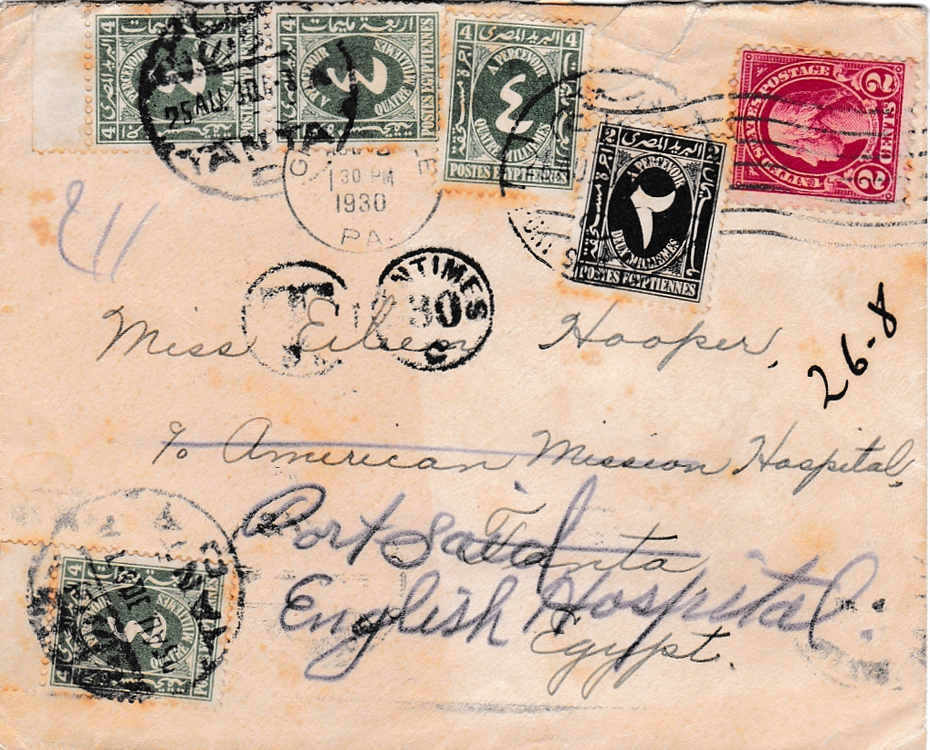 4 البريد المصرى 4
A PERCEVOIR
QUATRE MILLIEMES
POSTES EGYPTIENNES
اربعة مليمات
4
A PERCEVOIR
٤
QUATRE
POSTES EGYPTIENNES
4 البريد المصرى 4
A PERCEVOIR
٤
QUATRE MILLIEMES
POSTES EGYPTIENNES
2 البريد المصرى
A PERCEVOIR
٢
DEUX MILLIEMES
POSTES EGYPTIENNES
UNITED STATES POSTAGE
2 2
25 AU 30
TANTA
1 30 PM
1930
PA.
T
CENTIMES
30
C
Miss Eileen Hooper,
26-8
c/o American Mission Hospital,
Tanta
Port Said
English Hospital.
Egypt.
4
A PERCEVOIR
٤
QUATRE MILLIEMES